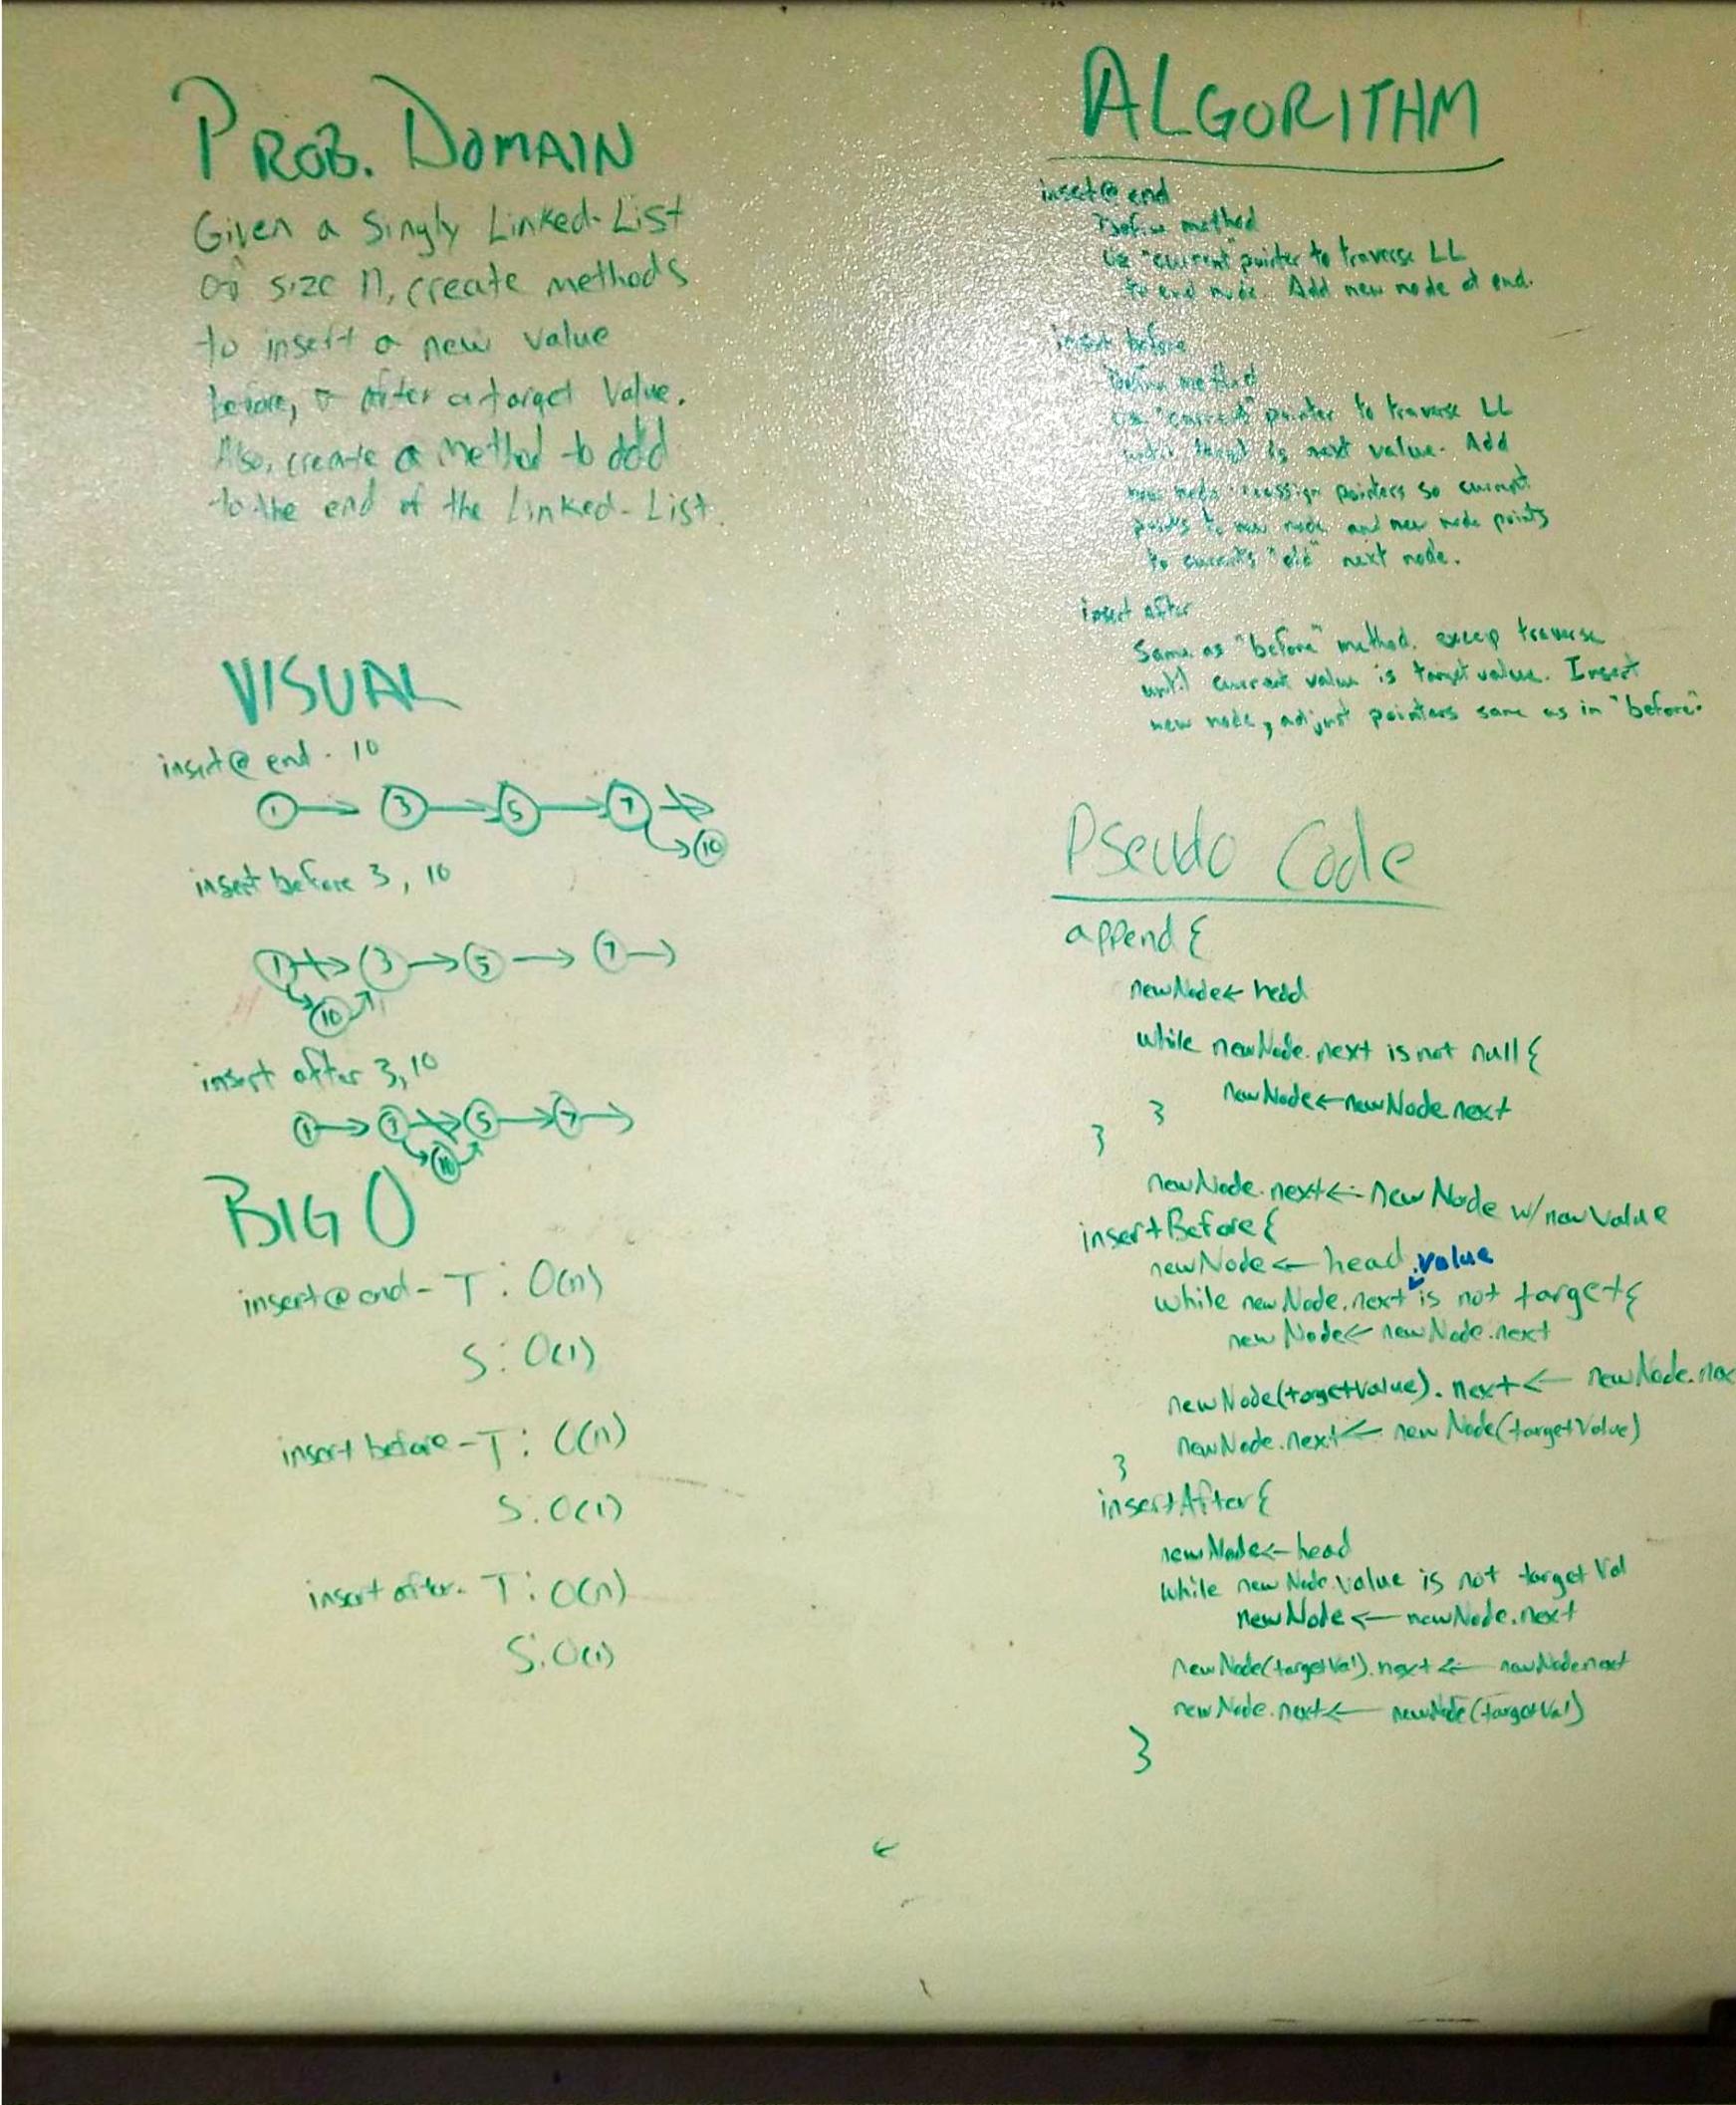 PROB. DOMAIN
Given a Singly Linked-List
of size n, create methods
to insert a new value
before, or after a target Value.
Also, create a method to add
to the end of the Linked-List.
VISUAL
insert@end - 10
1 → 3 → 5 → 7 →
10
insert before 3, 10
1 → 3 → 5 → 7 →
10
insert after 3, 10
1 → 3 → 5 → 7 →
10
BIG O
insert@end - T: O(n)
S: O(1)
insert before - T: O(n)
S: O(1)
insert after - T: O(n)
S: O(1)
ALGORITHM
insert@end
Define method
Use "current" pointer to traverse LL
to end node. Add new node at end.
insert before
Define method
Use "current" pointer to traverse LL
until target is next value. Add
new node reassign pointers so current
points to new node and new node points
to current's "old" next node.
insert after
Same as "before" method, excep traverse
until current value is target value. Insert
new node, adjust pointers same as in "before".
Pseudo Code
append {
newNode ← head
while newNode.next is not null {
newNode ← newNode.next
}
}
newNode.next ← new Node w/ newValue
insertBefore {
newNode ← head
.value
while newNode.next is not target {
newNode ← newNode.next
newNode(targetValue).next ← newNode.nex
newNode.next ← newNode(targetValue)
}
insertAfter {
newNode ← head
while newNode.value is not targetVal
newNode ← newNode.next
newNode(targetVal).next ← newNode.next
newNode.next ← newNode(targetVal)
}